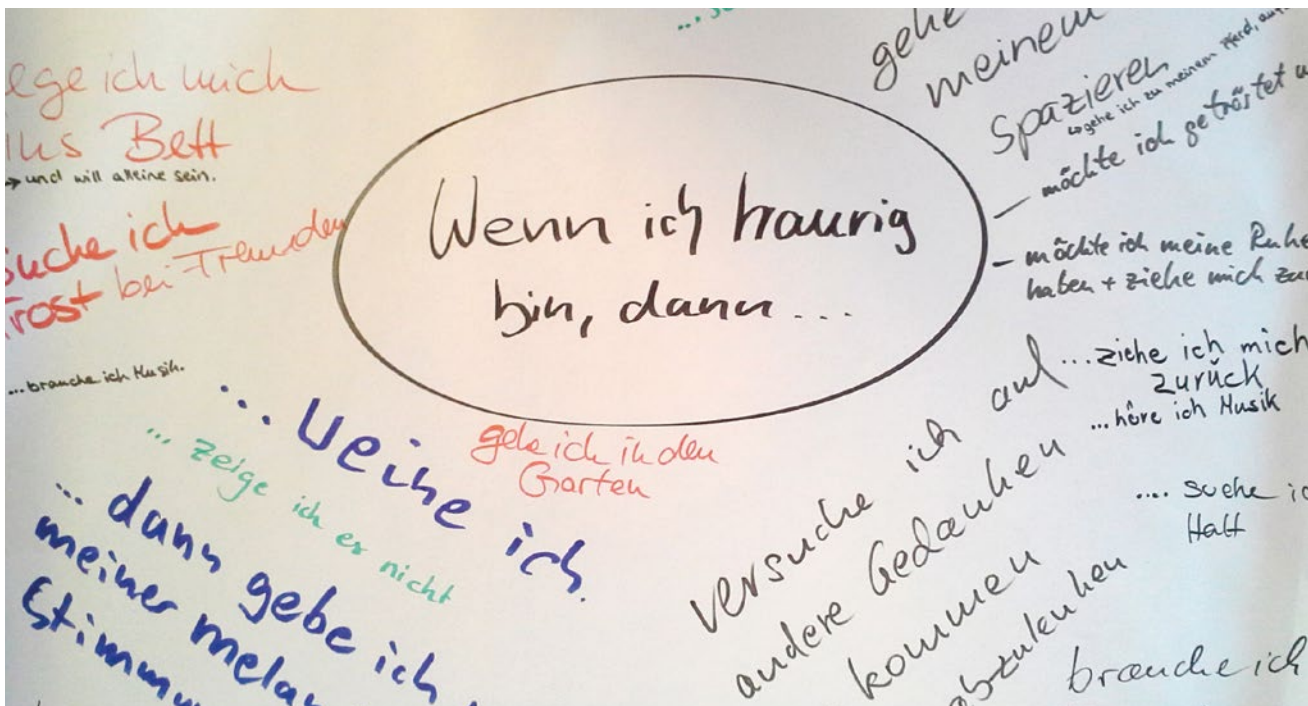 Wenn ich traurig
bin, dann ...
ege ich mich
ins Bett
→ und will alleine sein.
Suche ich
Trost bei Freunden
... brauche ich Musik.
... weine ich.
... zeige ich es nicht
... dann gebe ich
meiner
Stimmu
gehe ich in den
Garten
gehe
meinem
spazieren
↳ gehe ich zu meinem Pferd,
möchte ich getröstet
– möchte ich meine Ruhe
haben + ziehe mich
... ziehe ich mich
zurück
... höre ich Musik
.... suche ic
Halt
versuche ich auf
andere Gedanken
kommen
abzulenken
brauche ich